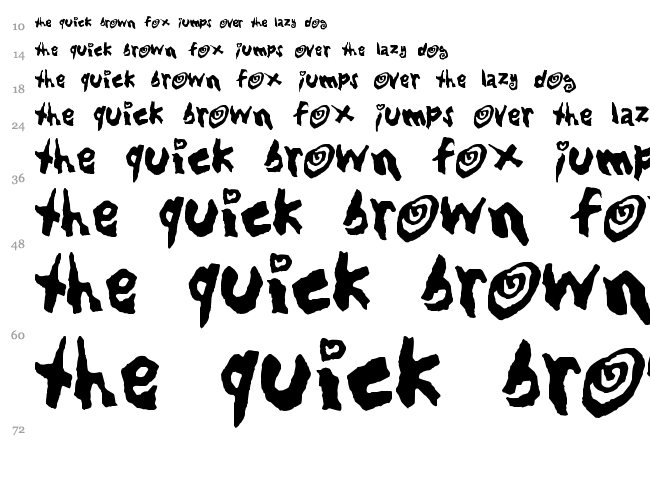 10 the quick brown fox jumps over the lazy dog
14 the quick brown fox jumps over the lazy dog
18 the quick brown fox jumps over the lazy dog
24 the quick brown fox jumps over the laz
36 the quick brown fox jump
48 the quick brown fo
60 the quick brown
72 the quick bro